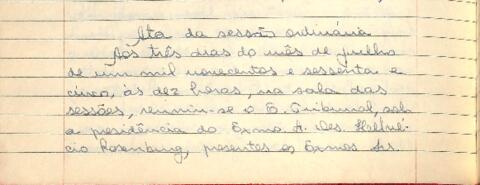 Ata da sessão ordinária
Aos três dias do mês de julho
de um mil novecentos e sessenta e
cinco, às dez horas, na sala das
sessões, reuniu-se o E. Tribunal, sob
a presidência do Exmo. Sr. Des. Helvé-
cio Rosenburg, presentes os Exmos Srs.